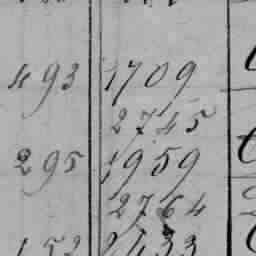 493 1709
2745
295 1959
2764
152 2433